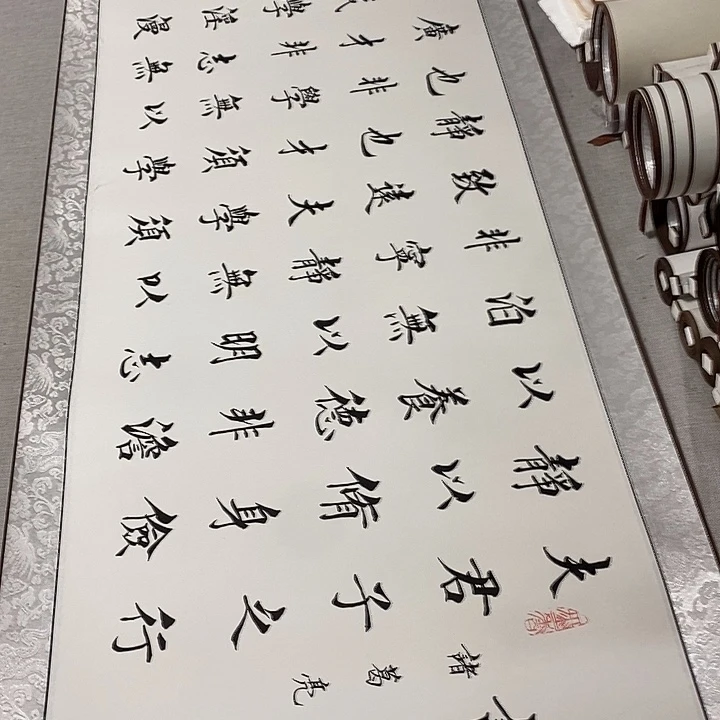 諸葛亮
夫君子之行
靜以脩身儉
以養德非澹
泊無以明志
非寧靜無以
致遠夫學須
靜也才須學
也非學無以
廣才非志無
學淫漫